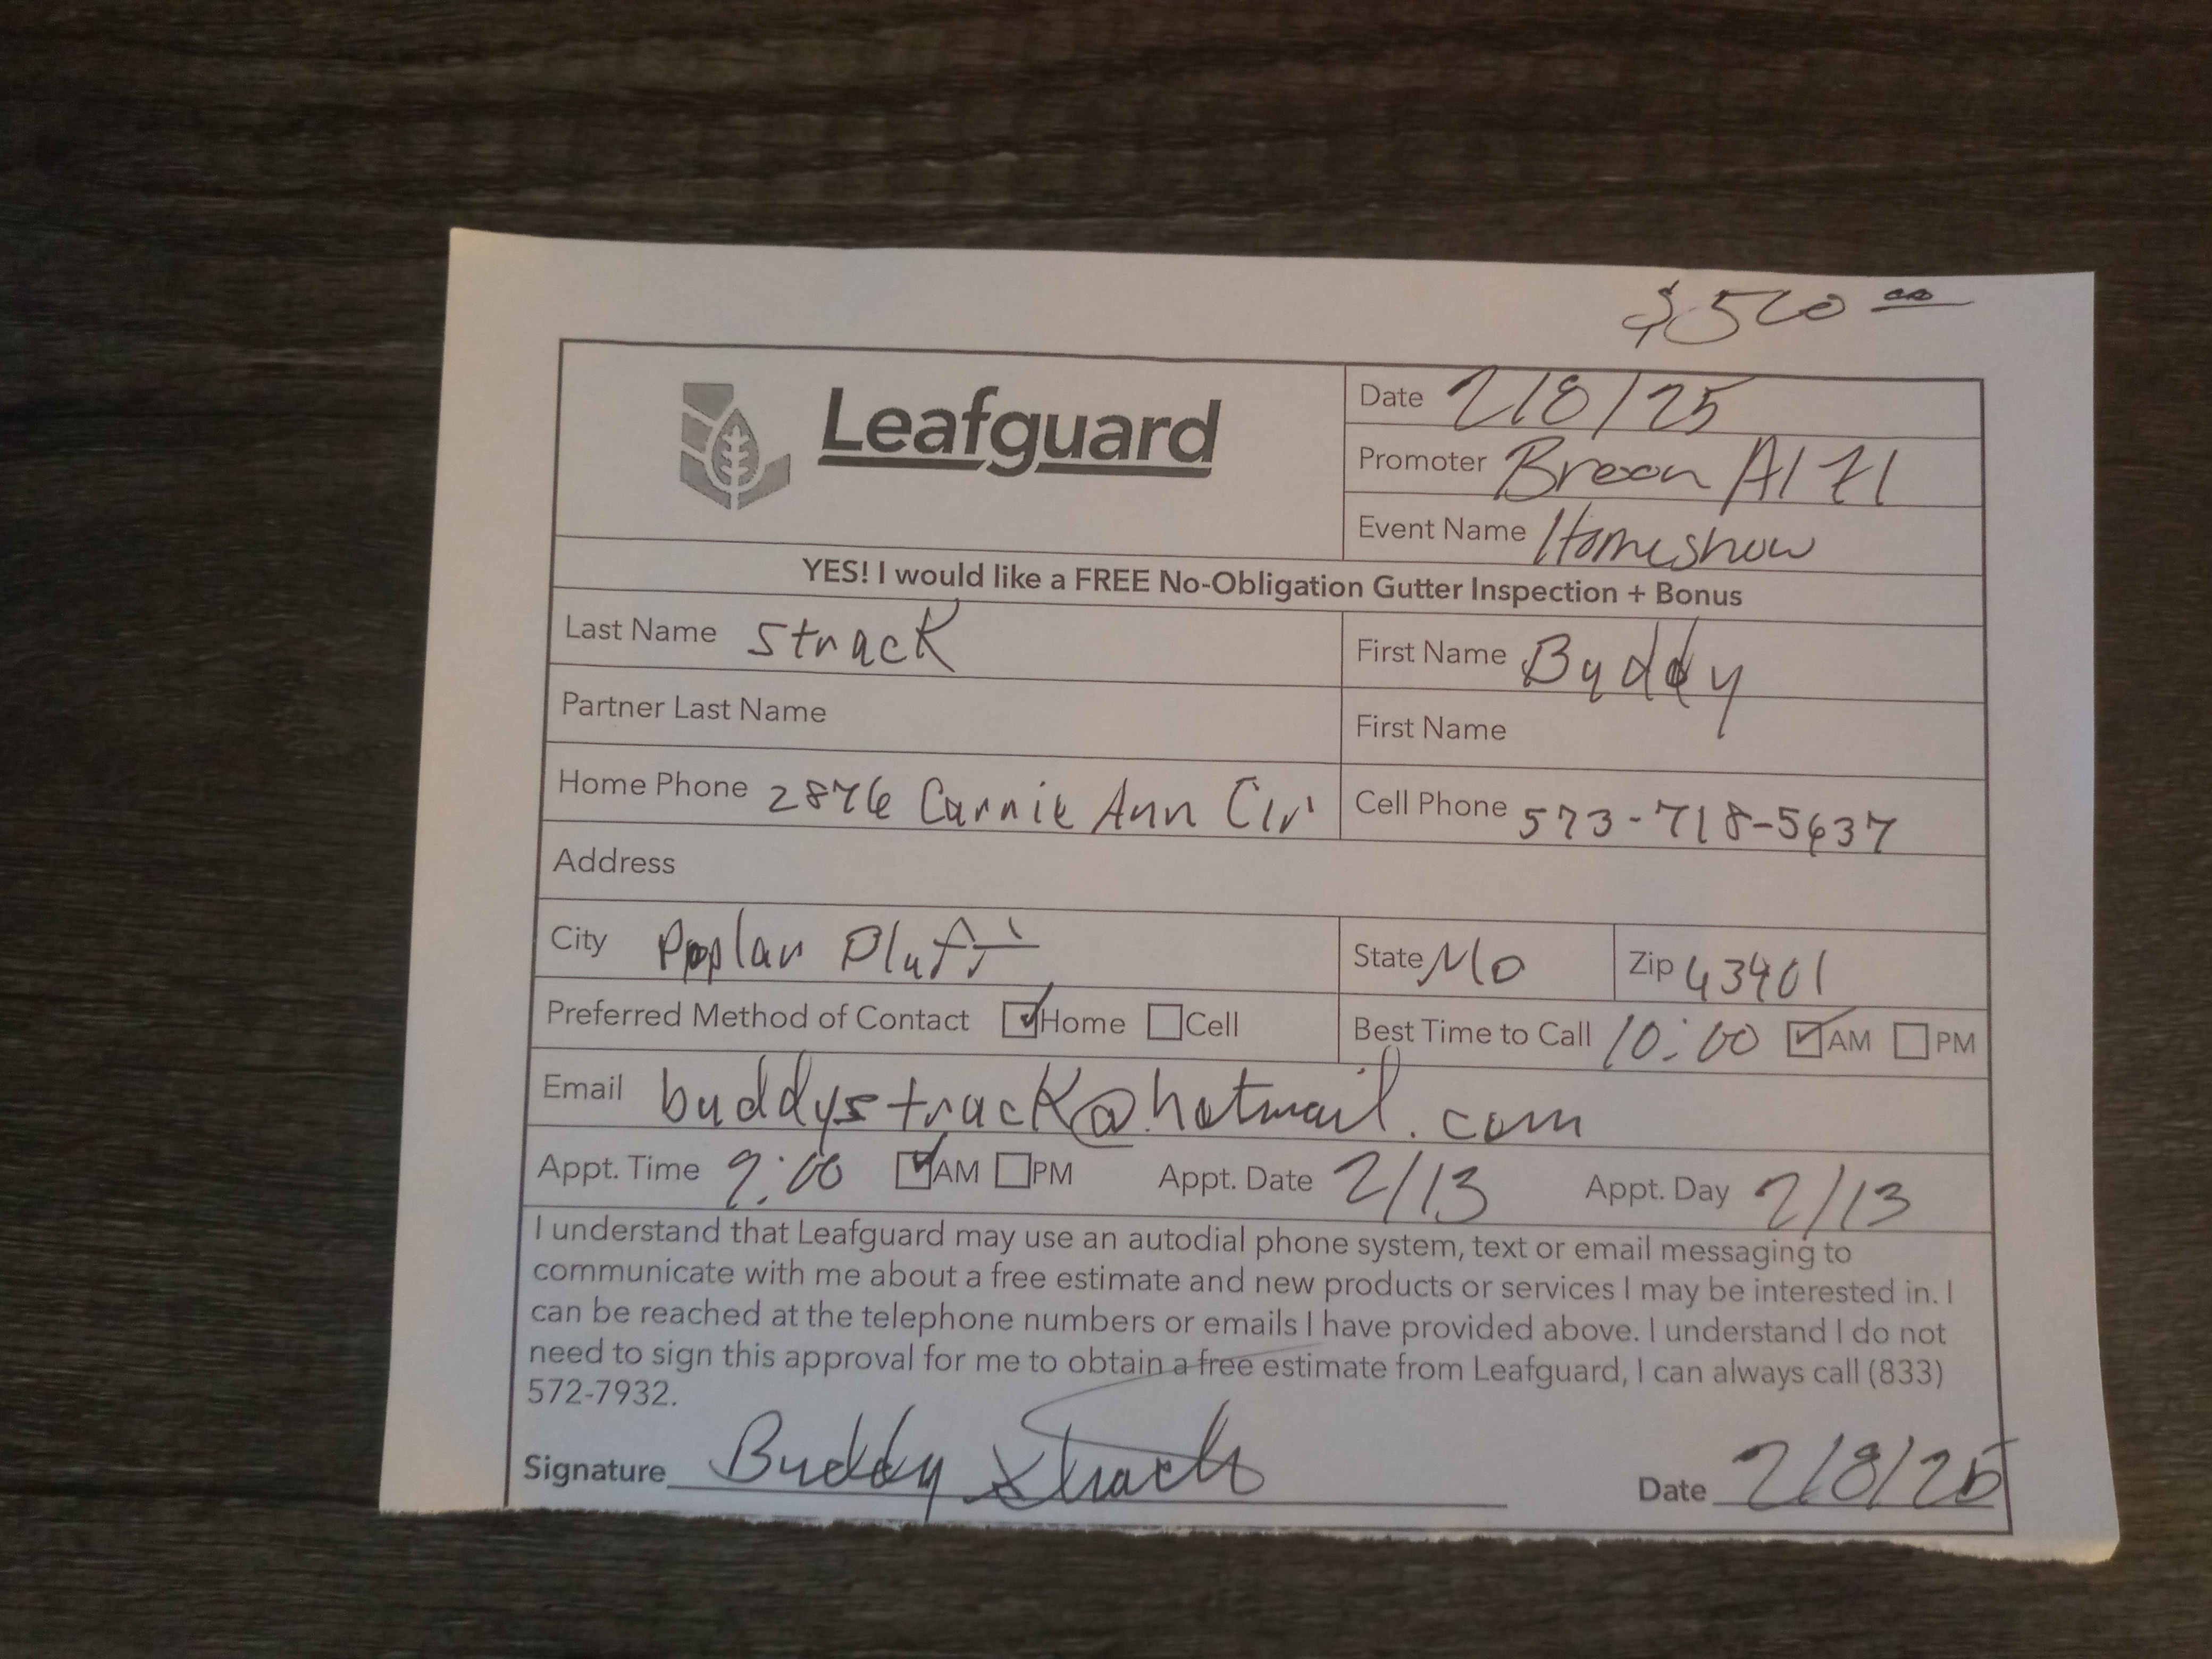 $500 00
Leafguard
Date 2/8/25
Promoter Breon A171
Event Name Homeshow
YES! I would like a FREE No-Obligation Gutter Inspection + Bonus
Last Name Strack First Name Buddy
Partner Last Name First Name
Home Phone 2876 Carnie Ann Cir Cell Phone 573-718-5637
Address
City Poplar Bluff State MO Zip 63901
Preferred Method of Contact Home Cell Best Time to Call 10:00 AM PM
Email buddystrack@hotmail.com
Appt. Time 9:00 AM PM Appt. Date 2/13 Appt. Day 2/13
I understand that Leafguard may use an autodial phone system, text or email messaging to
communicate with me about a free estimate and new products or services I may be interested in. I
can be reached at the telephone numbers or emails I have provided above. I understand I do not
need to sign this approval for me to obtain a free estimate from Leafguard, I can always call (833)
572-7932.
Signature Buddy Strack Date 2/8/25